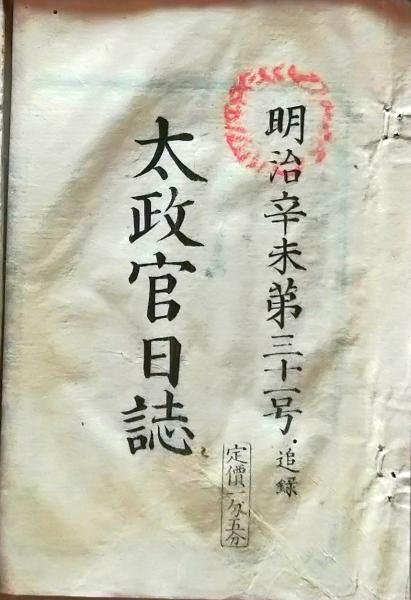 明治辛未第三十一号・追録
太政官日誌
定價一分五分